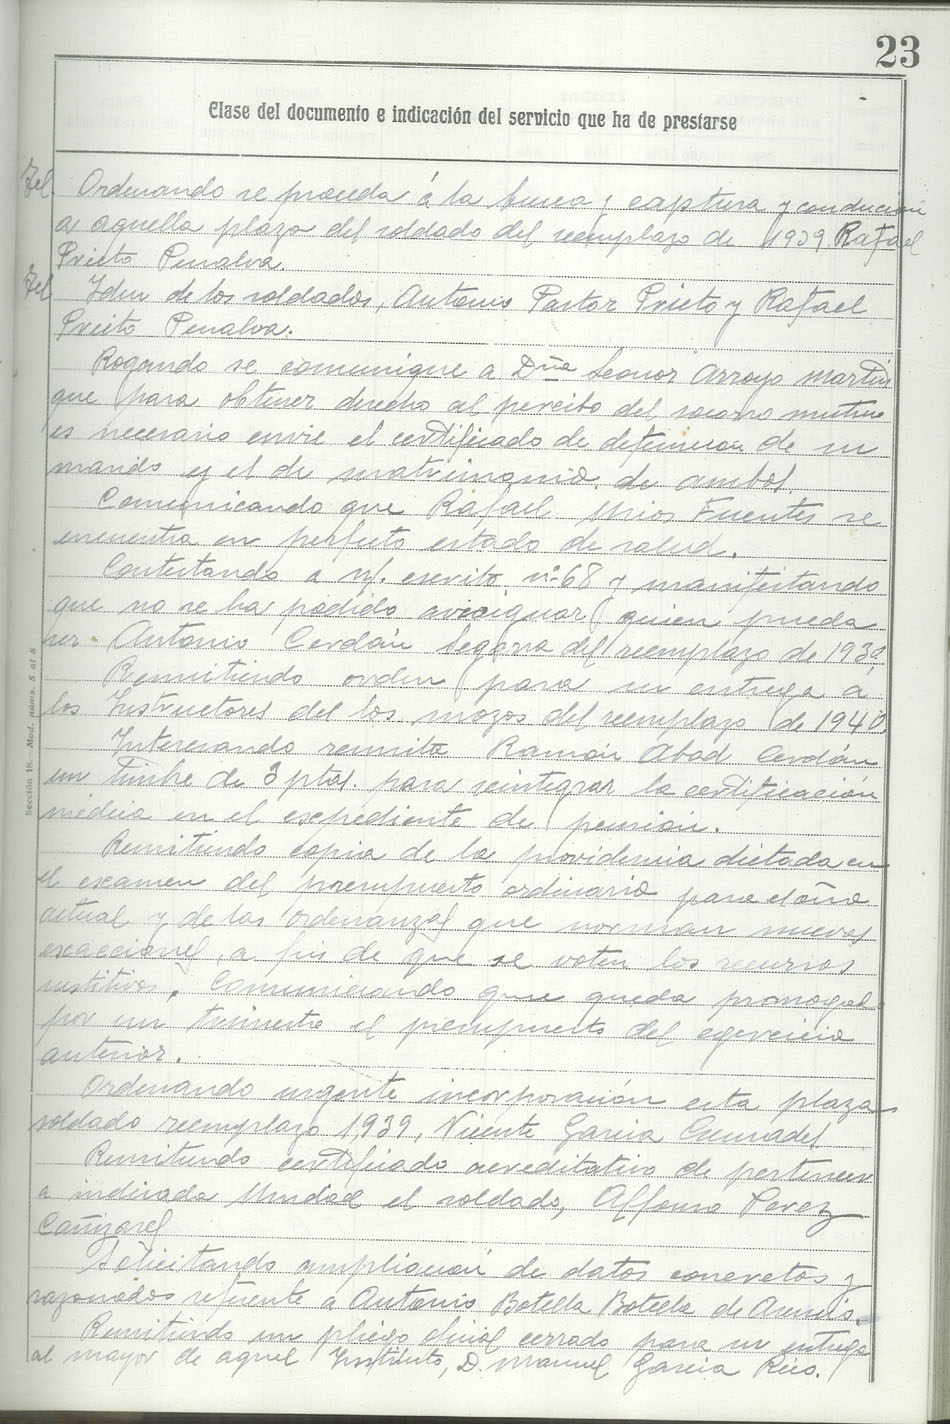 23
Clase del documento e indicación del servicio que ha de prestarse
Tel Ordenando se proceda á la busca y captura y conducción
a aquella plaza del soldado del reemplazo de 1939, Rafael
Prieto Penalva.
Tel Idem de los soldados, Antonio Pastor Prieto y Rafael
Prieto Penalva.
Rogando se comunique a Dña Leonor Arroyo Martín
que para obtener derecho al percibo del socorro mutuo
es necesario envie el certificado de defuncion de su
marido y el de matrimonio de ambos.
Comunicando que Rafael Mrios Fuentes se
encuentra en perfecto estado de salud.
Contestando a n/. escrito nº 68 y manifestando
que no se ha podido averiguar quien pueda
ser Antonio Cerdán Segarra del reemplazo de 1939.
Remitiendo orden para su entrega a
los Instructores del los mozos del reemplazo de 1940
Interesando remita Ramón Abad Cerdán
un timbre de 3 ptas. para reintegrar la certificación
médica en el expediente de pensión.
Remitiendo copia de la providencia dictada en
el examen del presupuesto ordinario para el año
actual y de las Ordenanzas que norman nuevas
exacciones, a fin de que se voten los recursos
Comunicando que queda prorrogado
por un trimestre el presupuesto del ejercicio
anterior.
Ordenando urgente incorporación esta plaza
soldado reemplazo 1939, Vicente Garcia
Remitiendo certificado acreditativo de pertenecer
a indicada Unidad el soldado, Alfonso Perez
Cañizares
Solicitando ampliación de datos concretos y
razonados referente a Antonio Botella Botella de
Remitiendo un pliego oficial cerrado para su entrega
al mayor de aquel Instituto, D. Manuel Garcia Rico.
Sección 18.—Mod. núms. 5 al 8